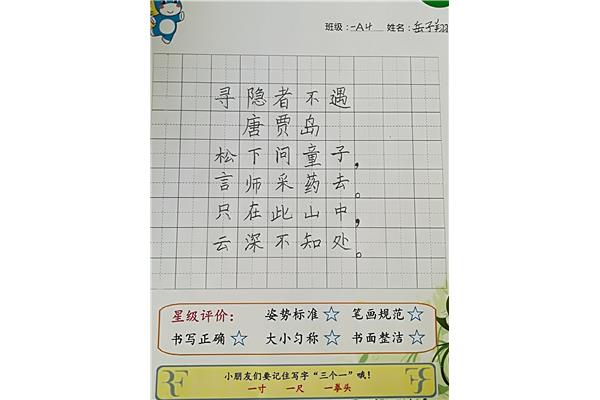 班级:一A4 姓名:岳子翔
寻隐者不遇
唐贾岛
松下问童子,
言师采药去。
只在此山中,
云深不知处。
星级评价: 姿势标准☆ 笔画规范☆
书写正确☆ 大小匀称☆ 书面整洁☆
小朋友们要记住写字“三个一”哦!
一寸 一尺 一拳头